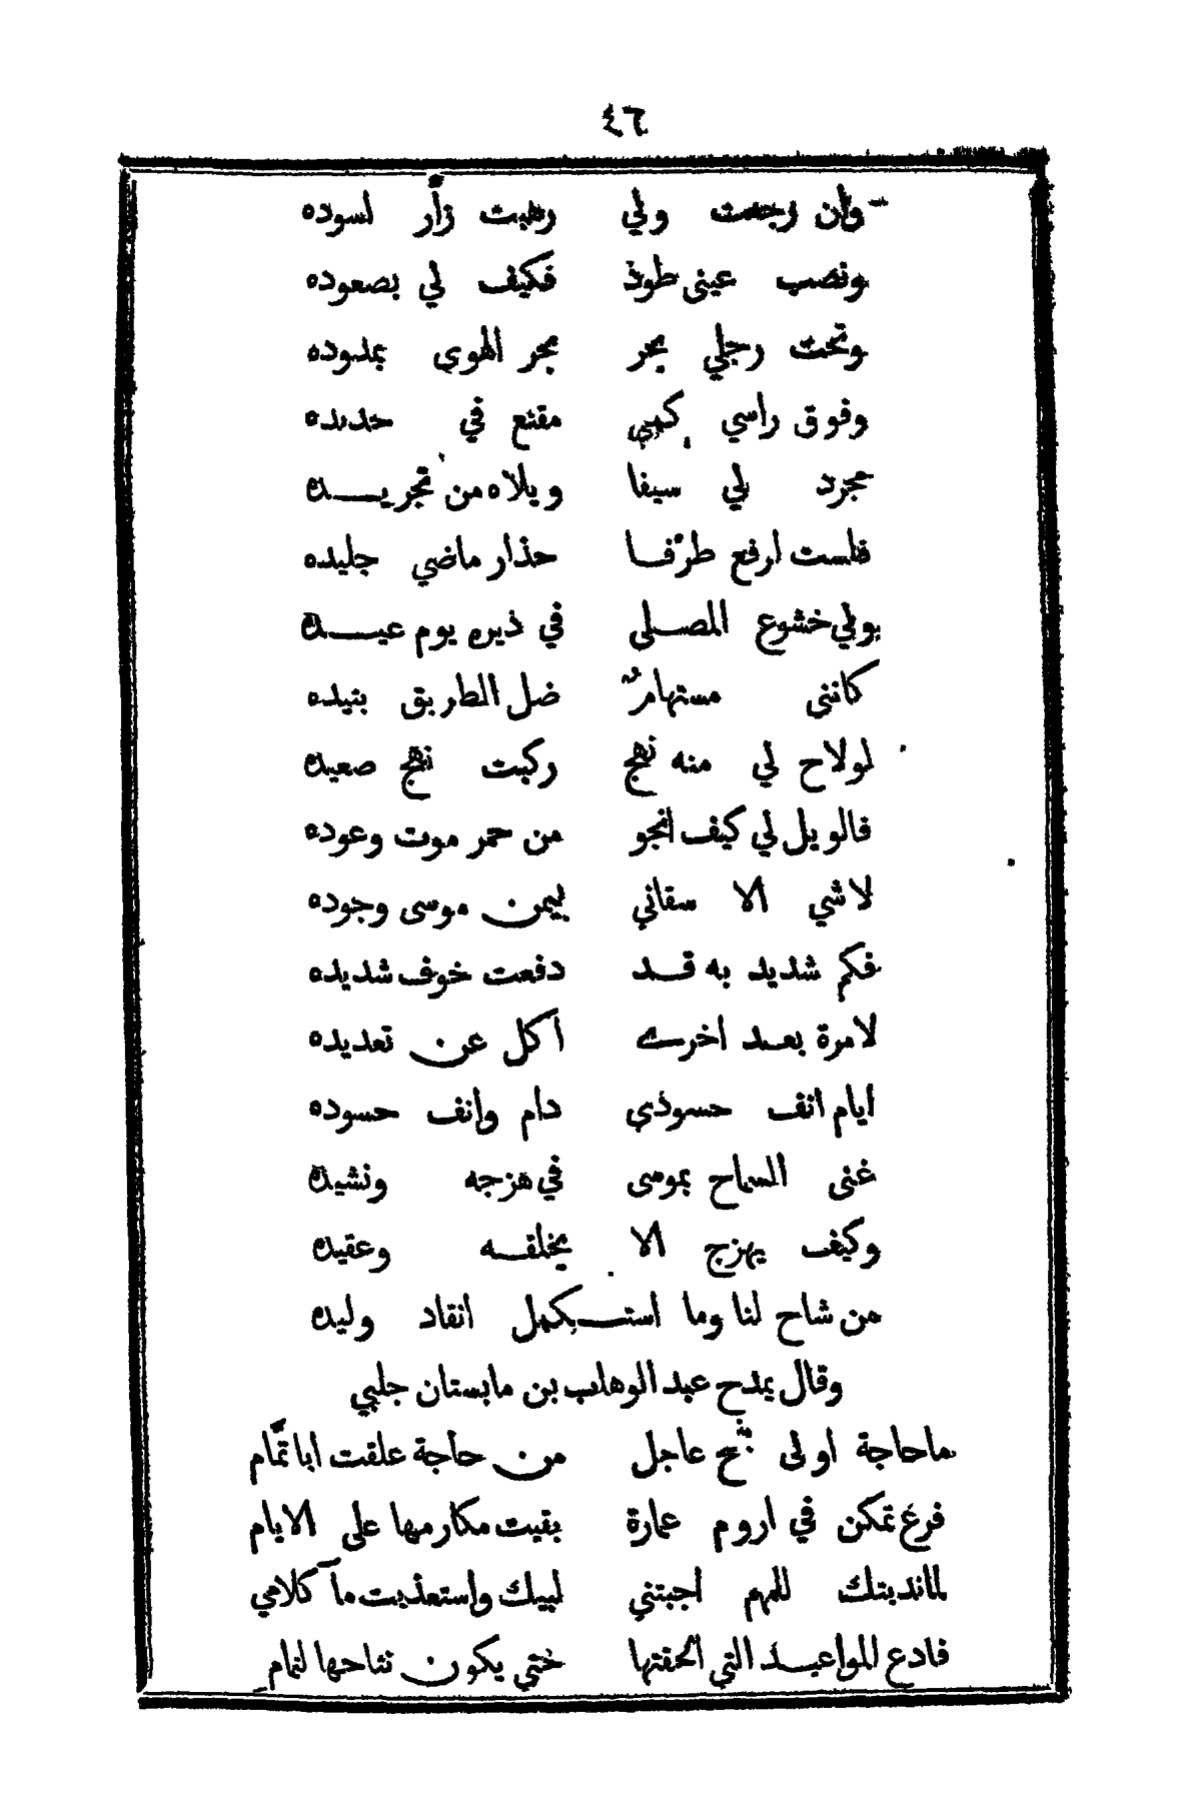 ٤٦
وان رجعت ولي رهبت زأر اسوده
ونصب عيني طود فكيف لي بصعوده
وتحت رجلي بحر بحر الهوى بمدوده
وفوق راسي كمي مقنع في حديده
مجرد لي سيفا ويلاه من تجريـــده
فلست ارفع طرفـا حذار ماضي جليده
بولي خشوع المصـلى في ذيره يوم عيـــده
كانني مستهام ضل الطريق بنيده
لولاح لي منه نهج ركبت نهج صعيده
فالويل لي كيف انجو من حمر موت وعوده
لاشي الا سقاني بيمن موسى وجوده
فكم شديد به قــد دفعت خوف شديده
لامرة بعـد اخرے اكل عن تعديده
ايام انف حسودي دام وانف حسوده
غنى السماح بموسى في هزجه ونشيده
وكيف يهزج الا بخلقــه وعقيده
من شاح لنا وما استــكمل انقاد وليده
وقال يمدح عبد الوهاب بن مابستان جلبي
ماحاجة اولى بنجح عاجل من حاجة علقت ابا تمّام
فرغ تمكن في اروم عمارة بقيت مكارمها على الايام
لماندبتك للمهم اجبتني لبيك واستعذبت مآ كلامي
فادع المواعيــد التي الحقتها ختي يكون نتاحها لتمام